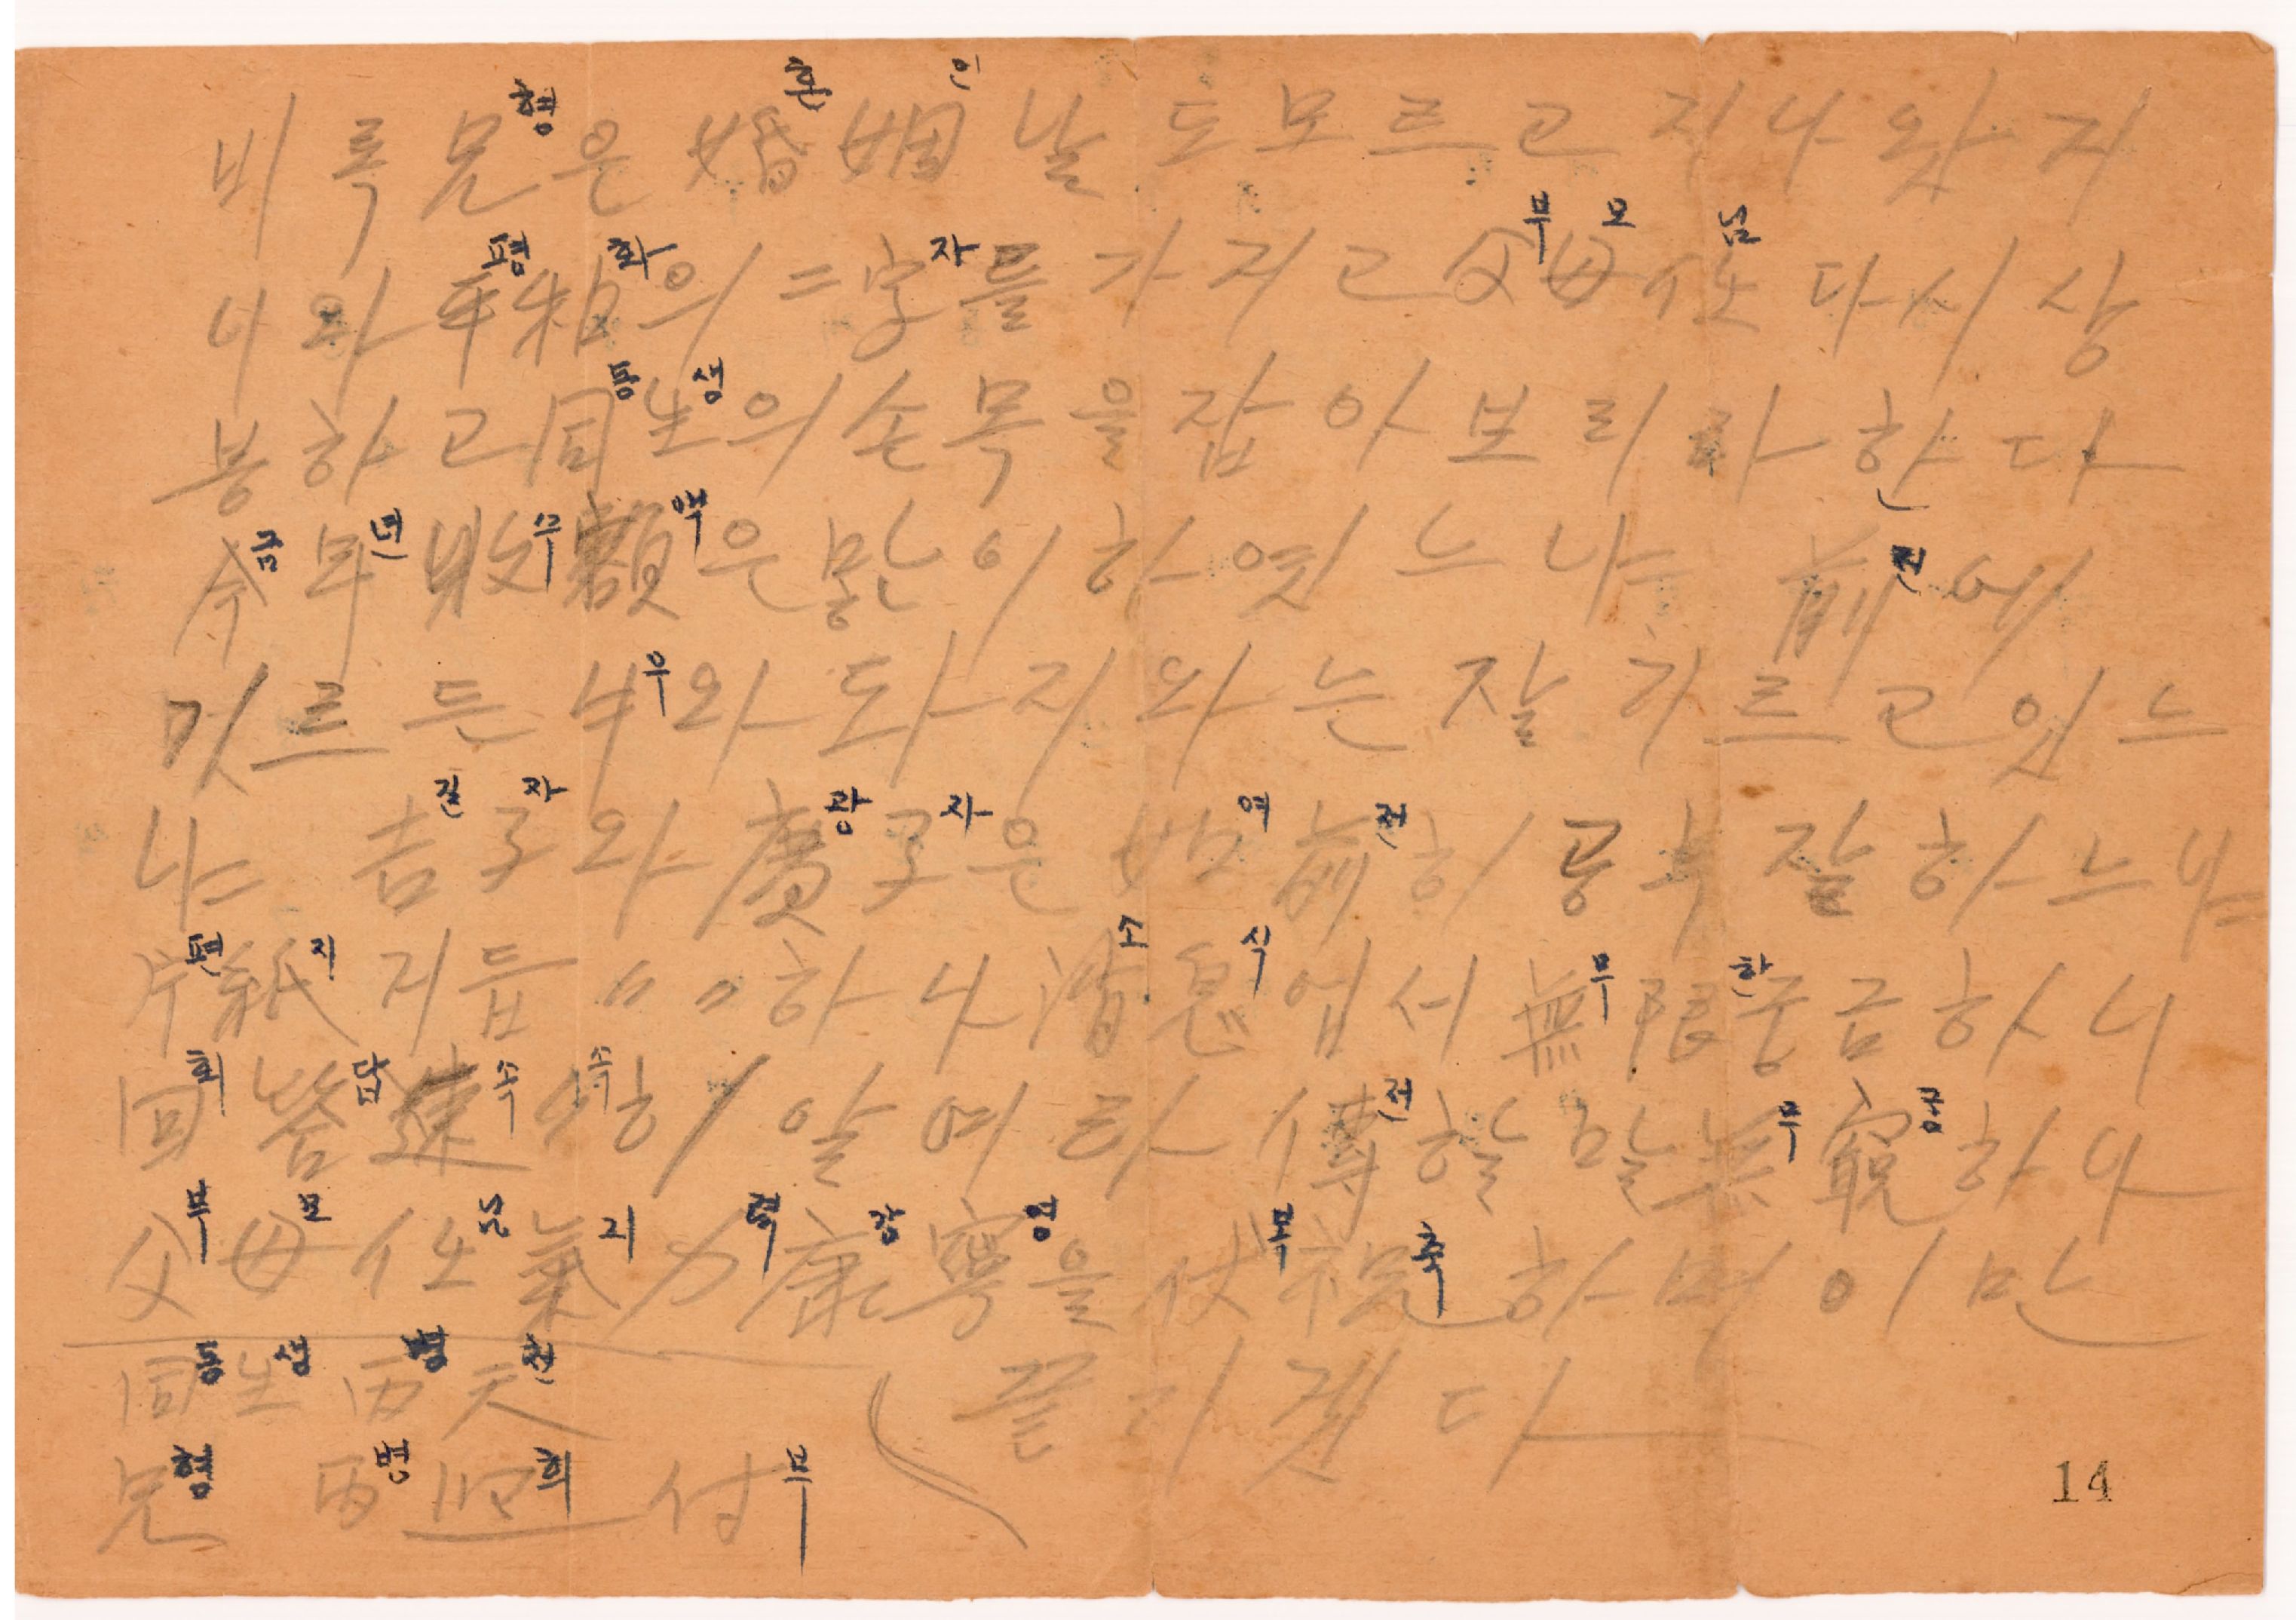 형 혼 인
비록 兄은 婚姻날도 모르고 지나왔지
평 화 자 부 모 님
나와 平和의 二字를 가지고 父母任 다시 상
동 생
봉하고 同生의 손목을 잡아보리라 한다
금 년 수 액 전
今年 收額은 많이 하엿느냐 前에
우
깃르든 牛와 도야지와는 잘 기르고 있느
길 자 광 자 여 전
냐 吉子와 廣子은 如前히 공부 잘 하느냐
편 지 소 식 무 한
片紙 지듭〃〃하나 消息 업서 無限궁금하니
회 답 속 속 전 무 궁
回答 速々히 알여 傳할 말 無窮하나
부 모 님 기 력 강 영 복 축
父母任 氣力康寧을 伏祝하며 이만
동 생 병 천
同生 丙天 끝이겠다
형 병 희 부
兄 丙熙 付
14